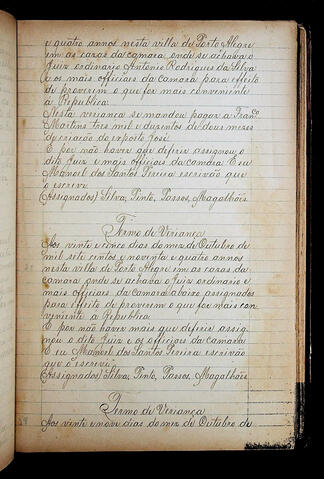 e quatro annos nesta villa de Porto Alegre
em as cazas da camara onde se achava o
Juiz ordinario Antonio Rodrigues da Silva
e os mais officiaes da camara para effeito
de proverem o que for mais conveniente
a Republica.
Nesta veriança se mandou pagar a Franco
Martins tres mil e duzentos de dous mezes
de criação do exposto José.
E por não haver que deferir assignou o
dito Juiz e mais officiaes da camara. E eu
Manoel dos Santos Pereira escrivão que
o escrevi.
(Assignados) Silva, Pinto, Passos, Magalhães
Termo de Veriança
Aos vinte e cinco dias do mez de Outubro de
mil sete centos e noventa e quatro annos
nesta villa de Porto Alegre em as cazas da
camara onde se achava o Juiz ordinario e
mais officiaes da camara abaixo assignados
para effeito de proverem o que for mais con
veniente a Republica.
E por não haver mais que deferir assig-
nou o dito Juiz e os officiaes da camara.
E eu Manoel dos Santos Pereira escrivão
que o escrevi.
(Assignados) Silva, Pinto, Passos, Magalhães
Termo de Veriança
Aos vinte e nove dias do mez de Outubro de